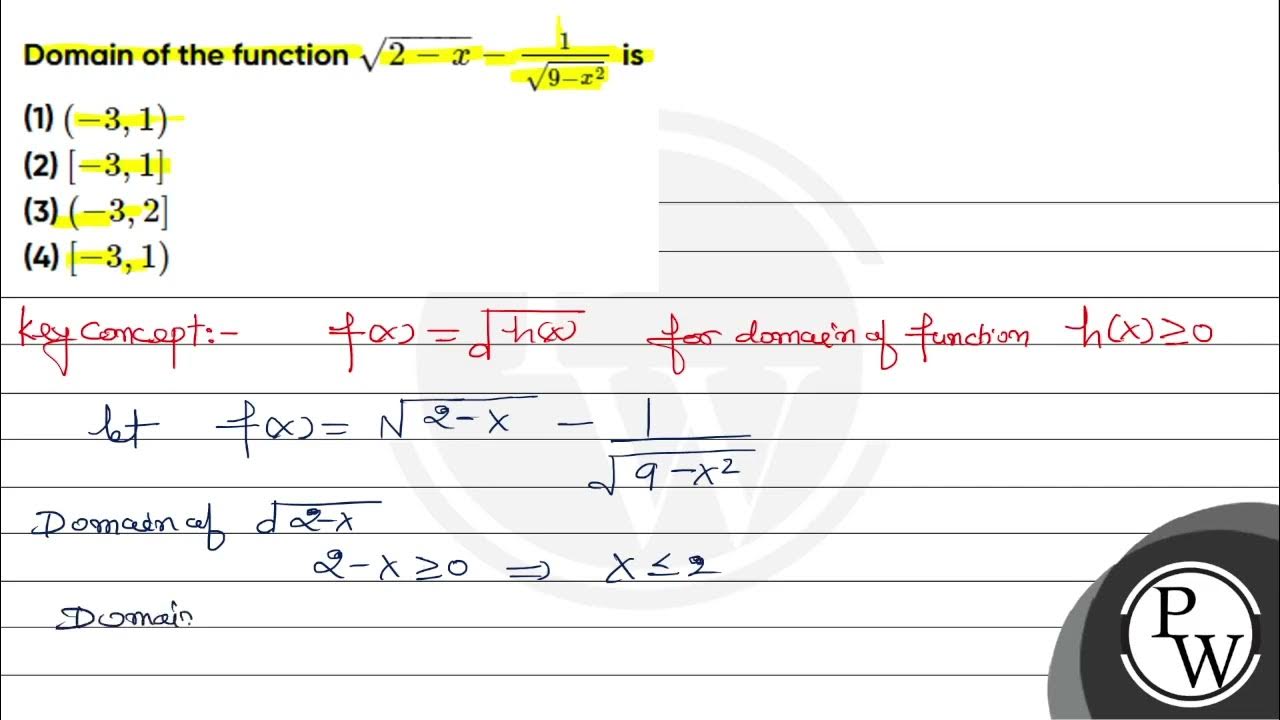 Domain of the function √(2 − x) − 1/√(9−x²) is
(1) (−3, 1)
(2) [−3, 1]
(3) (−3, 2]
(4) [−3, 1)
Key concept:- f(x) = √h(x) for domain of function h(x) ≥ 0
let f(x) = √(2 − x) − 1/√(9 − x²)
Domain of √(2−x)
2 − x ≥ 0 ⇒ x ≤ 2
Domain
PW